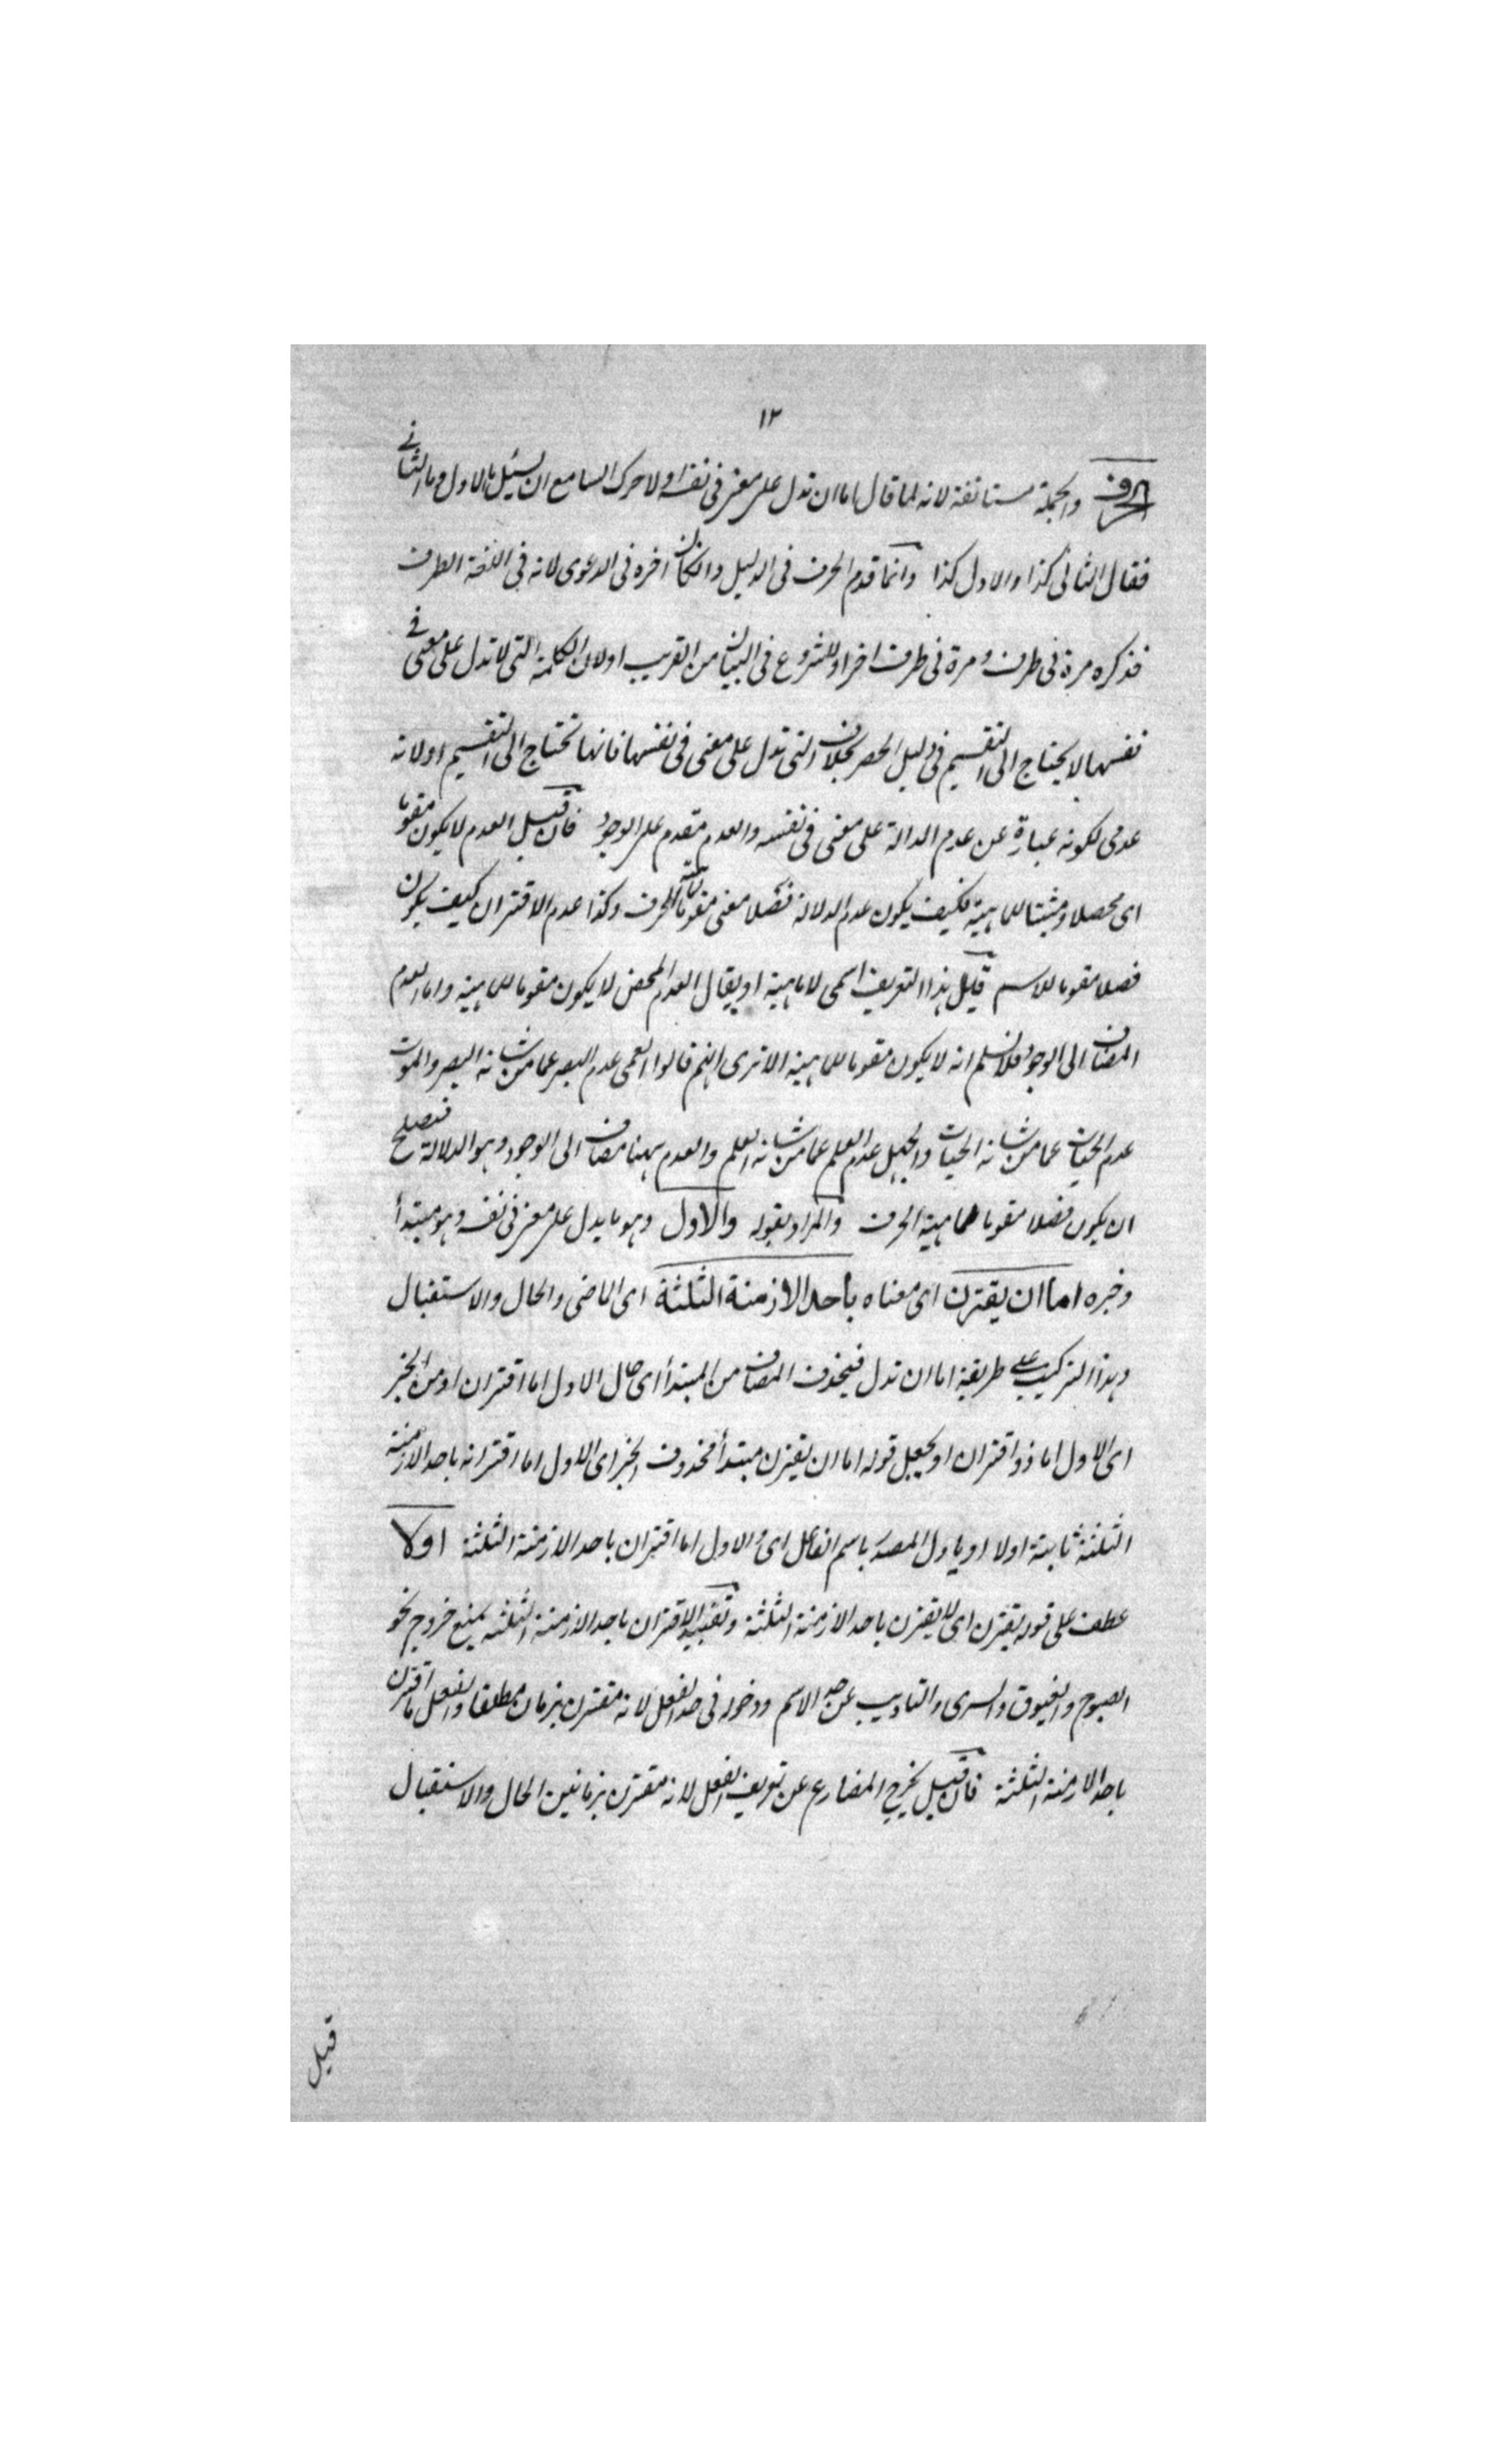 ١٢
الحرف والجملة مستانفة لانه لما قال اما ان تدل على معنى فى نفسه اولا حرك السامع ان يسئل ما الاول وما الثانے
فقال الثانى كذا والاول كذا وانما قدم الحرف فى الدليل وان كان اخره فى الدعوى لانه فى اللغة الطرف
فذكره مرة فى طرف ومرة فى طرف اخر او للشروع فى البيان من القريب اولان الكلمة التى لا تدل على معنى فے
نفسها لا يحتاج الى التقسيم فى دليل الحصر بخلاف التى تدل على معنى فى نفسها فانها تحتاج الى التقسيم اولانه
عدمى لكونه عبارة عن عدم الدالة على معنى فى نفسه والعدم مقدم على الوجود فان قيل العدم لا يكون مقوما
اى محصلا ومثبتا للماهية فكيف يكون عدم الدلالة فصلا معنى مقوما للحرف وكذا عدم الاقتران كيف يكون
فصلا مقوما للاسم قيل هذا التعريف اسمى لا ماهية او يقال العدم المحض لا يكون مقوما للماهية واما العدم
المضاف الى الوجود فلا نسلم انه لا يكون مقوما للماهية الا ترى انهم قالوا العمى عدم البصر عما من شانه البصر والموت
عدم الحيات عما من شانه الحيات والجهل عدم العلم عما من شانه العلم والعدم ههنا مضاف الى الوجود وهو الدلالة فيصلح
ان يكون فصلا مقوما لماهية الحرف والمراد بقوله والاول وهو ما يدل على معنى فى نفسه وهو مبتدأ
وخبره اما ان يقترن اى معناه باحد الازمنة الثلثة اى الماضى والحال والاستقبال
وهذا التركيب على طريقة اما ان تدل فيحذف المضاف من المبتدأ اى حال الاول اما اقتران او من الخبر
اى الاول اما ذو اقتران او يجعل قوله اما ان يقترن مبتدأ محذوف الخبر اى الاول اما اقترانه باحد الازمنة
الثلثة ثابتة اولا او ياول المصدر باسم الفاعل اى والاول اما اقتران باحد الازمنة الثلثة اولا
عطف على قوله يقترن اى لا يقترن باحد الازمنة الثلثة وتقييد الاقتران باحد الازمنة الثلثة يمنع خروج نحو
الصبوح والغبوق والسرى والتاديب عن حد الاسم ودخوله فى حد الفعل لانه مقترن بزمان مطلقا والفعل ما اقترن
باحد الازمنة الثلثة فان قيل يخرج المضارع عن تعريف الفعل لانه مقترن بزمانين الحال والاستقبال
قيل